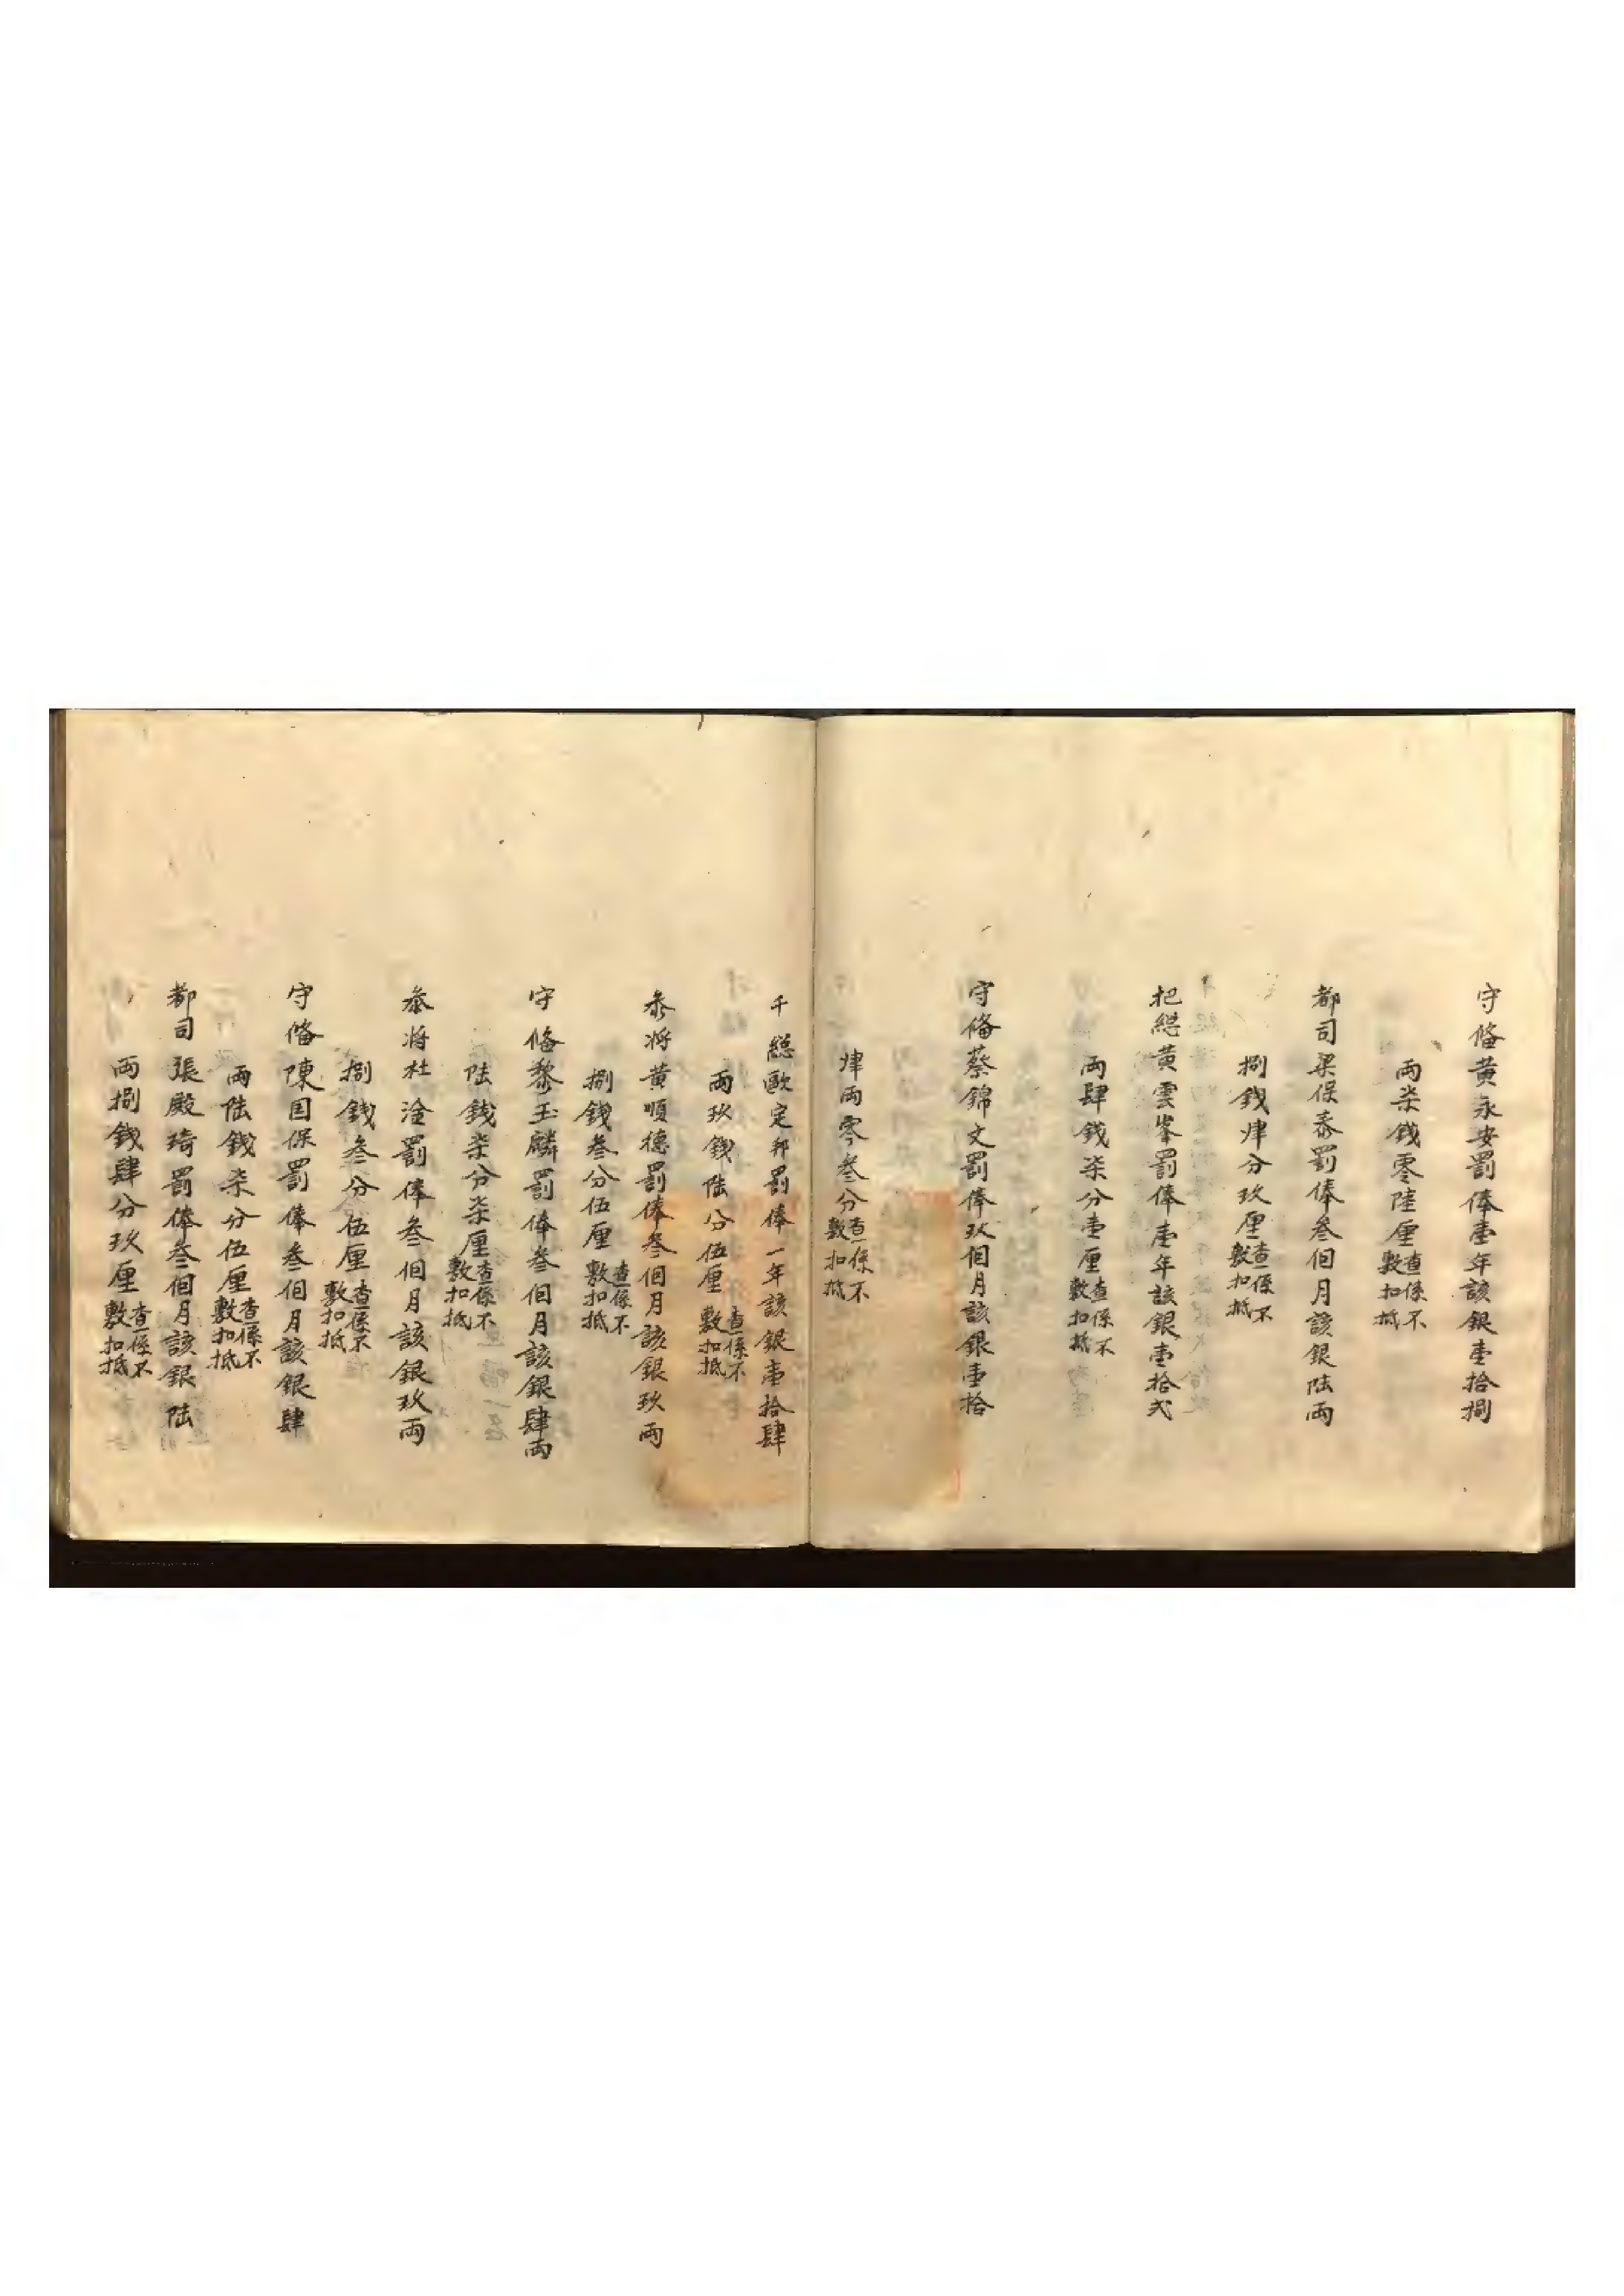 守偹黄永安罰俸壹年該銀壹拾捌
兩柒錢零陸厘查係不敷扣抵
都司梁保泰罰俸叁個月該銀陸兩
捌錢肆分玖厘查係不敷扣抵
把緫黄雲峯罰俸壹年該銀壹拾弍
兩肆錢柒分壹厘查係不敷扣抵
守偹蔡錦文罰俸玖個月該銀壹拾
肆兩零叁分查係不敷扣抵
千緫歐定邦罰俸一年該銀壹拾肆
兩玖錢陸分伍厘查係不敷扣抵
叅将黄順德罰俸叁個月該銀玖兩
捌錢叁分伍厘查係不敷扣抵
守偹黎玉麟罰俸叁個月該銀肆兩
陆錢柒分柒厘查係不敷扣抵
叅将杜淦罰俸叁個月該銀玖兩
捌錢叁分伍厘查係不敷扣抵
守偹陳国保罰俸叁個月該銀肆
兩陆錢柒分伍厘查係不敷扣抵
都司張殿琦罰俸叁個月該銀陆
兩捌錢肆分玖厘查係不敷扣抵